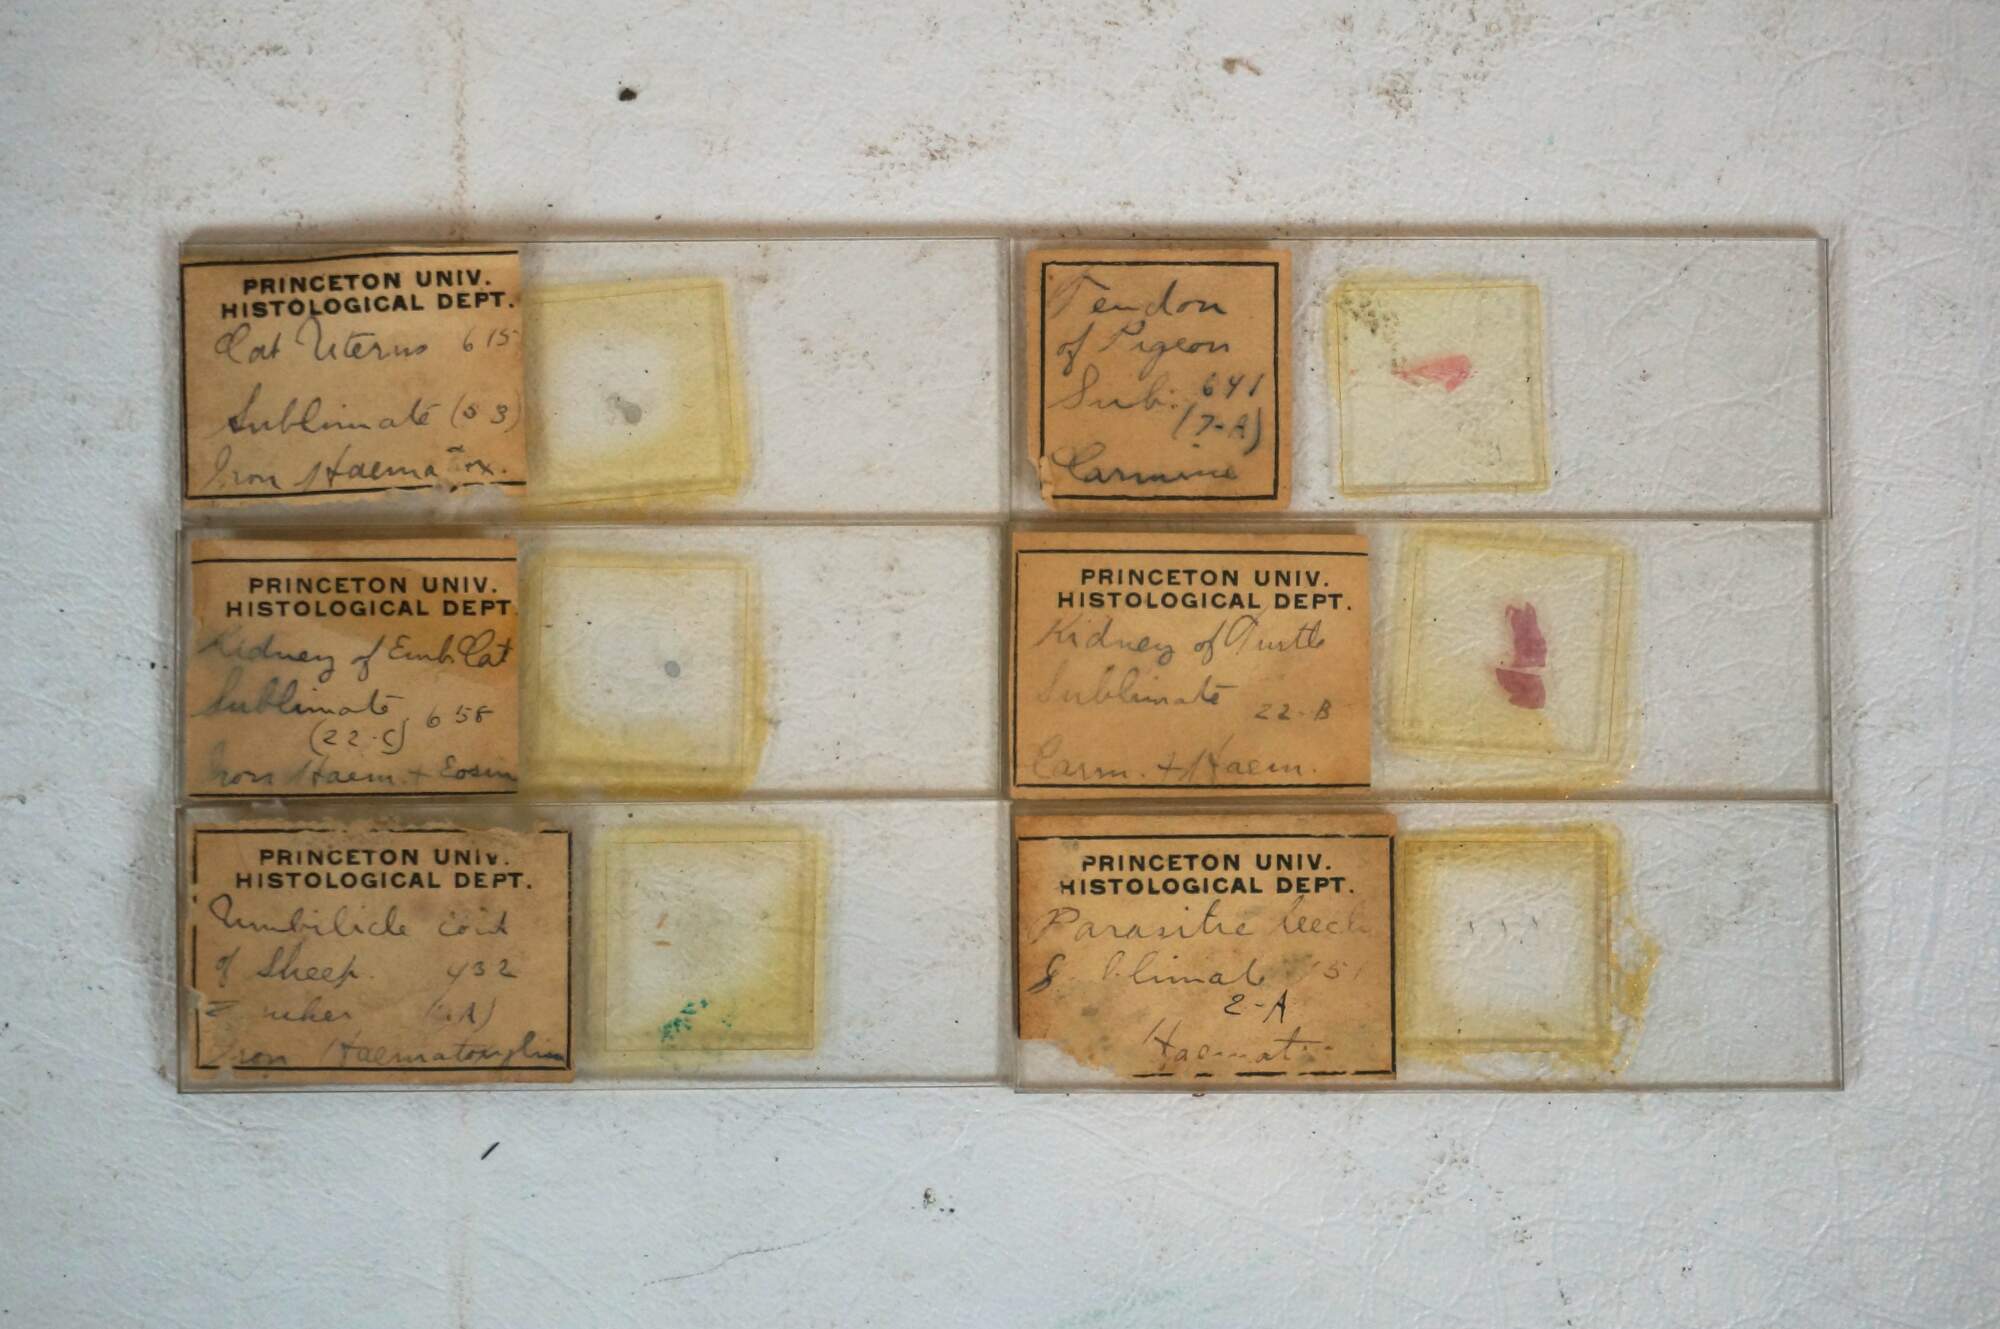 PRINCETON UNIV.
HISTOLOGICAL DEPT.
Cat Uterus 615
Sublimate (53)
Iron Haematox.
Tendon
of Pigeon
Sub. 641
(7-A)
Carmine
PRINCETON UNIV.
HISTOLOGICAL DEPT.
Kidney of Emb. Cat
Sublimate
(22-C) 658
Iron Haem. + Eosin
PRINCETON UNIV.
HISTOLOGICAL DEPT.
Kidney of Turtle
Sublimate 22-B
Carm. + Haem.
PRINCETON UNIV.
HISTOLOGICAL DEPT.
Umbilicle cord
of Sheep. 432
Iron Haematoxylin
PRINCETON UNIV.
HISTOLOGICAL DEPT.
Parasitic leech
2-A